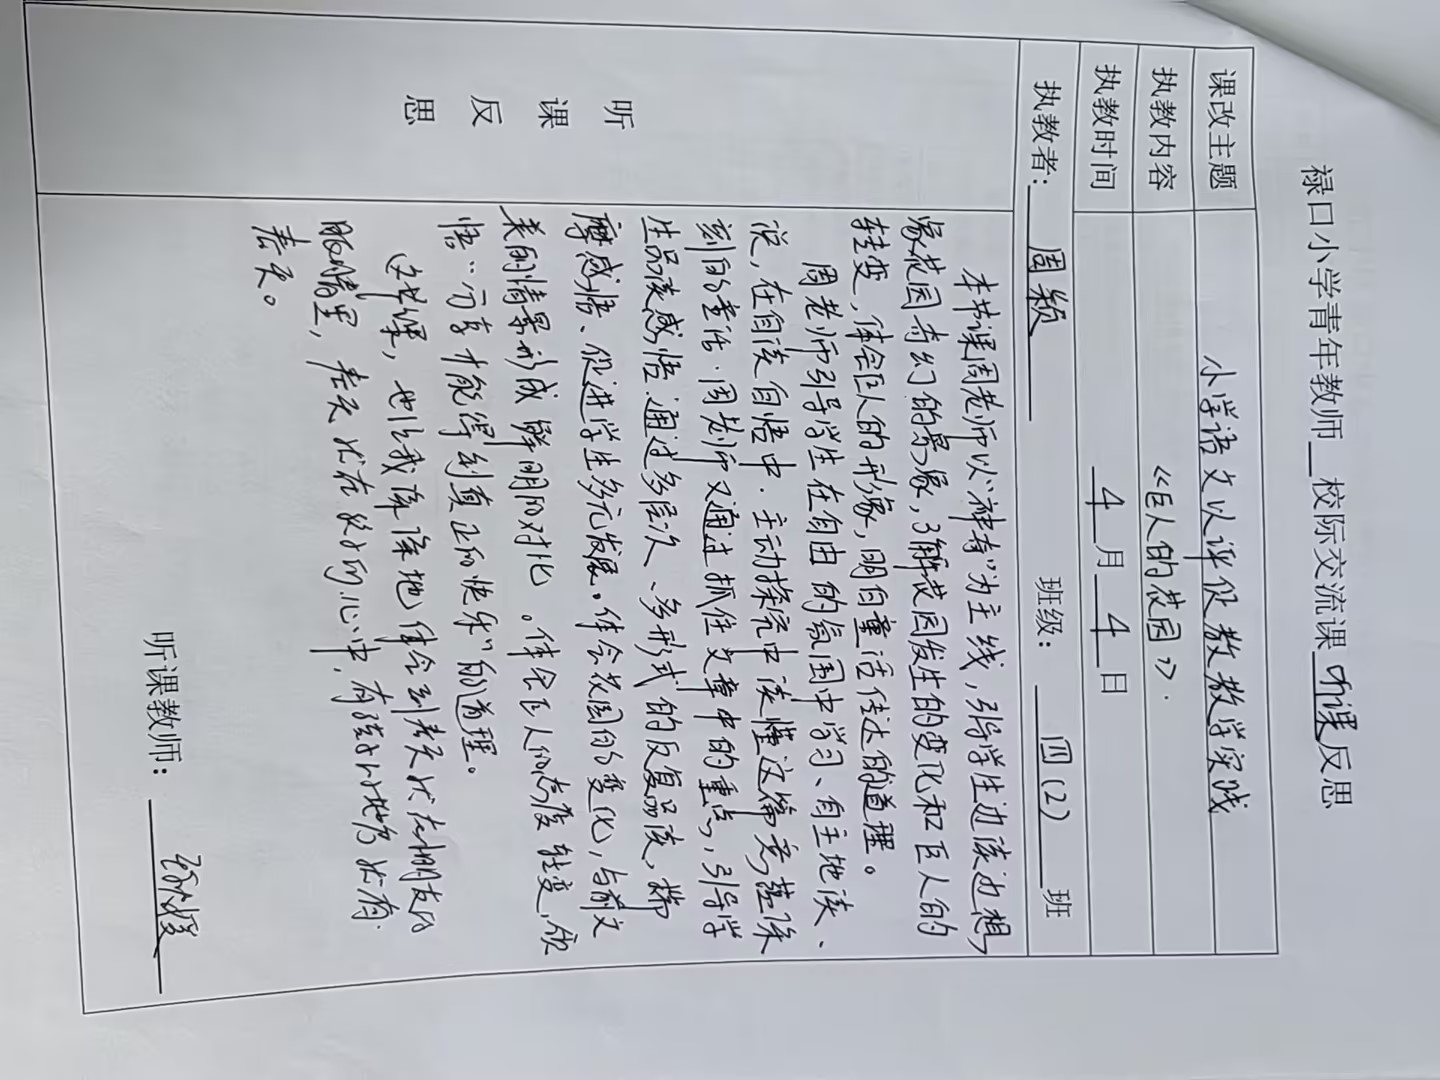 禄口小学青年教师__校际交流课 听课 反思
课改主题 小学语文以评促教教学实践
执教内容 《巨人的花园》.
执教时间 4 月 4 日
执教者: 周颖 班级: 四(2) 班
本节课周老师以“神奇”为主线,引导学生边读边想
象花园奇幻的景象,了解花园发生的变化和巨人的
转变,体会巨人的形象,明白童话传达的道理。
周老师引导学生在自由的氛围中学习、自主地读、
说,在自读自悟中.主动探究中读懂这篇意蕴深
刻的童话.周老师又通过抓住文章中的重点,引导学
生品读感悟.通过多层次、多形式的反复品读,揣
摩感悟、促进学生多元发展。体会花园的变化,与前文
美的情景形成鲜明的对比。体会巨人的态度转变,领
悟“分享才能得到真正的快乐”的道理。
这节课,也让我深深地体会到春天就在小朋友的
眼睛里,春天就在孩子的心中,有孩子的地方就有
春天。
听课反思
听课教师: